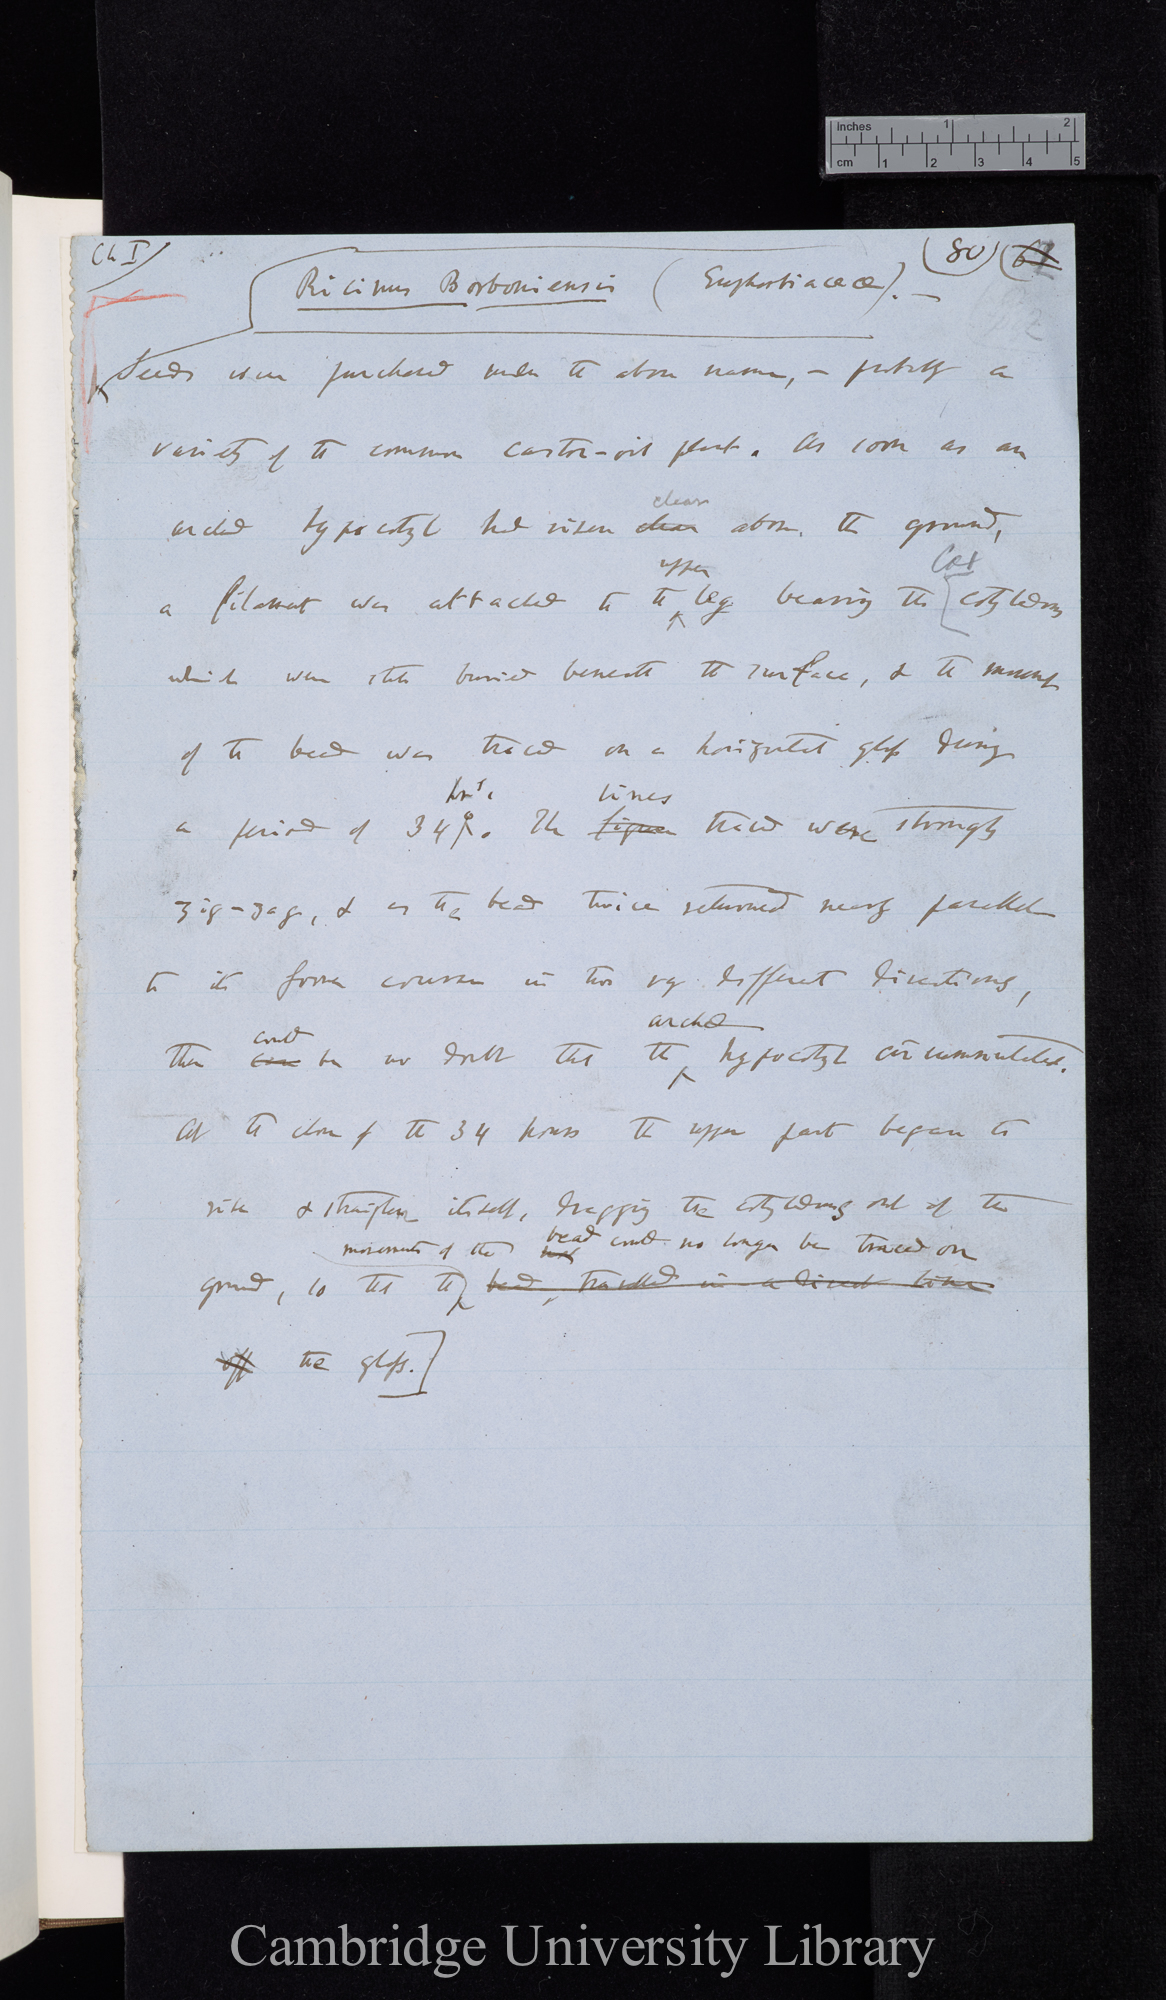 Inches 1 2
cm 1 2 3 4 5
Ch I
(80) (61
Ricinus Borboniensis (Euphorbiaceæ).—
Seeds were purchased under the above name, – probably a
variety of the common castor-oil plant. As soon as an
clear
arched hypocotyl had risen clear above the ground,
upper Cot
a filament was attached to the leg bearing the cotyledons
which were still buried beneath the surface, & the movement
of the bead was traced on a horizontal glass during
hrs. lines
a period of 34 h. The figure traced were strongly
zig-zag, & as the bead twice returned nearly parallel
to its former course in two very different directions,
could arched
there can be no doubt that the hypocotyl circumnutated.
At the close of the 34 hours the upper part began to
rise & straighten itself, dragging the cotyledons out of the
movements of the bead could no longer be traced on
ground, so that the bead, travelled in a direct line
off the glass.]
Cambridge University Library